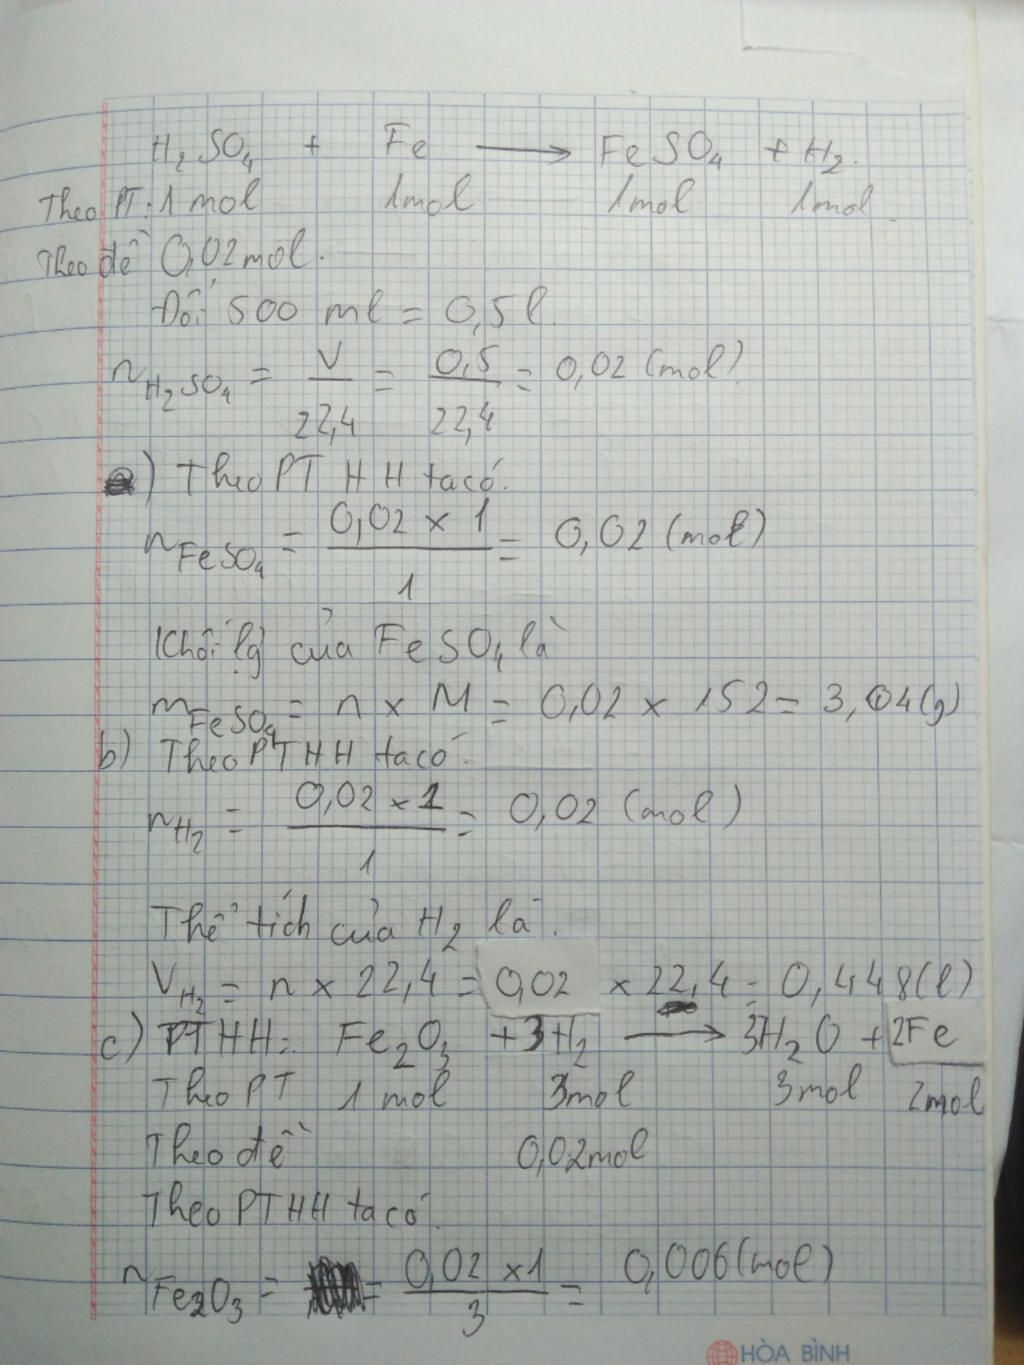 H₂SO₄ + Fe ⟶ FeSO₄ + H₂.
Theo PT: 1 mol 1mol 1mol 1mol.
Theo đề 0,02mol.
Đổi 500 ml = 0,5l.
n H₂SO₄ = V/22,4 = 0,5/22,4 = 0,02 (mol).
a) Theo PT HH ta có.
n FeSO₄ = 0,02 × 1/1 = 0,02 (mol)
Khối lg của FeSO₄ là
m FeSO₄ = n × M = 0,02 × 152 = 3,04(g)
b) Theo PTHH ta có.
n H₂ = 0,02 × 1/1 = 0,02 (mol)
Thể tích của H₂ là.
V H₂ = n × 22,4 = 0,02 × 22,4 = 0,448(l)
c) PTHH: Fe₂O₃ + 3H₂ ⟶ 3H₂O + 2Fe
Theo PT 1 mol 3mol 3mol 2mol
Theo đề 0,02mol
Theo PTHH ta có.
n Fe₂O₃ = = 0,02 × 1/3 = 0,006(mol)
HÒA BÌNH